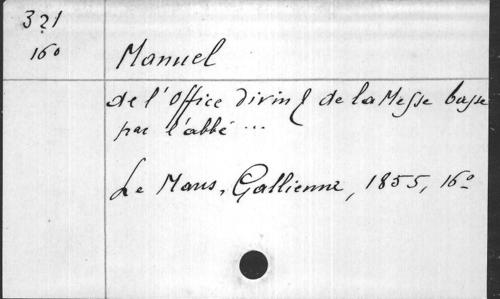 321
16º
Manuel
de l'office divin & de la Messe basse
par l'abbé ...
Le Mans, Gallienne, 1855, 16º